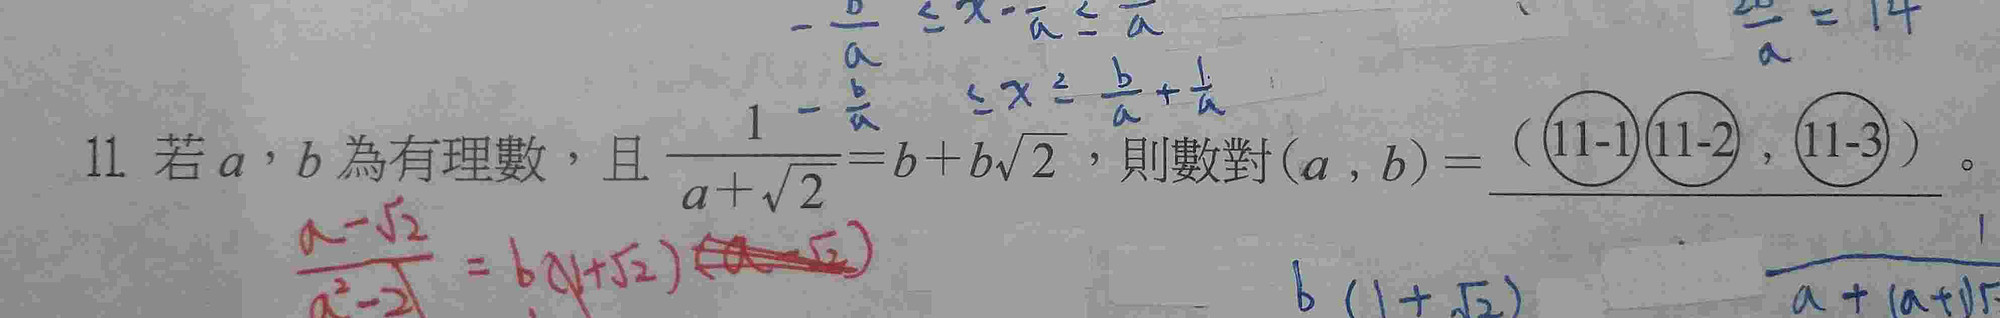 - b/a ≤ x - /a ≤ /a
/a = 14
- b/a ≤ x ≤ b/a + 1/a
11. 若 a，b 為有理數，且 1/(a+√2) = b+b√2，則數對(a , b) = (11-1 11-2 , 11-3)。
(a-√2)/(a²-2) = b(1+√2)
b (1+√2)
1
a + (a+1)√